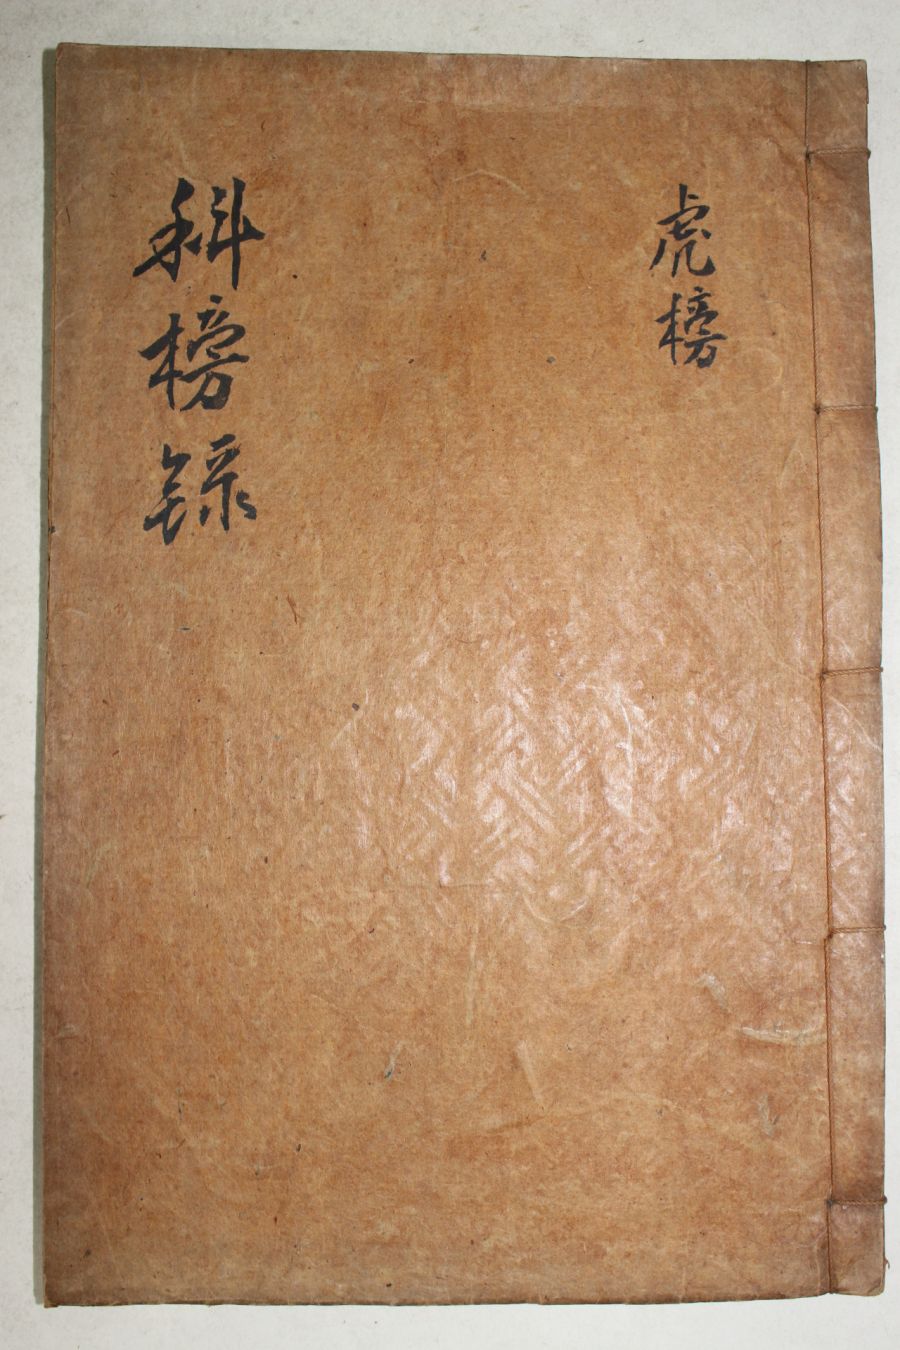 虎榜
科榜錄